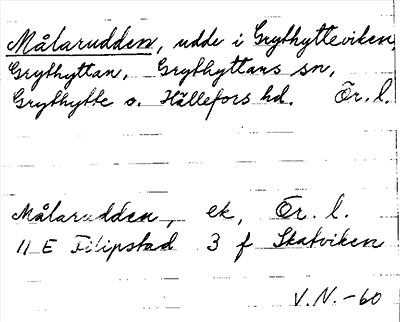 Målarudden, udde i Grythytteviken,
Grythyttan, Grythyttans sn,
Grythytte o. Hällefors hd. Ör. l.
Målarudden, ek, Ör. l.
11 E Filipstad 3 f Skatviken
V.N.-60